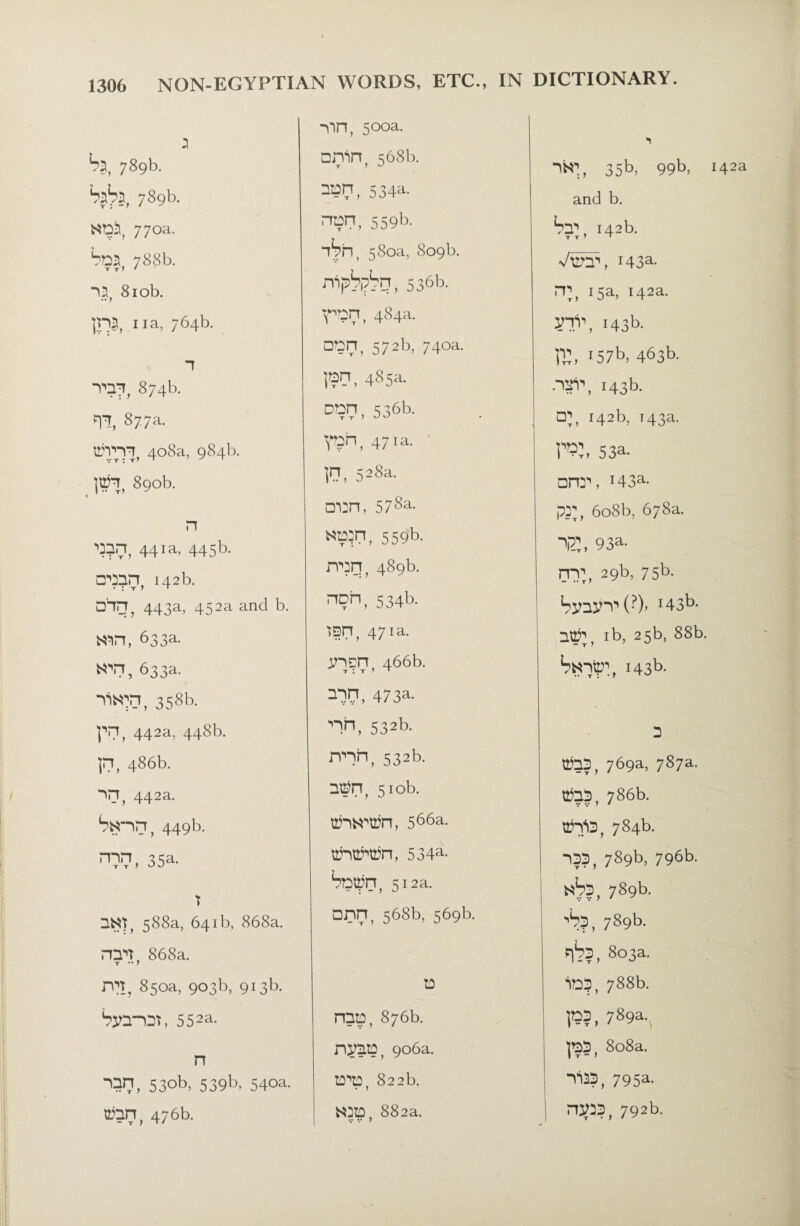 1306 NON-EGYPTIAN WORDS, ETC., IN DICTIONARY.
ג
גַּל, 789b.
גַּלְגַּל, 789b.
גֹּמֶא, 770a.
גָּמָל, 788b.
גֵּר, 810b.
גַּרְזֶן, 11a, 764b.
ד
דְּבִיר, 874b.
דַּף, 877a.
דָּרְיָוֶשׁ, 408a, 984b.
דָּשֵׁן, 890b.
ה
הָבְנִי, 441a, 445b.
הָבְנִים, 142b.
הֲדֹם, 443a, 452a and b.
הוּא, 633a.
הִיא, 633a.
הַיְאוֹר, 358b.
הִין, 442a, 448b.
הֵן, 486b.
הַר, 442a.
הַר־אֵל, 449b.
הָרָה, 35a.
ז
זְאֵב, 588a, 641b, 868a.
זֵיבָה, 868a.
זַיִת, 850a, 903b, 913b.
זכר־בעל, 552a.
ח
חָבֵר, 530b, 539b, 540a.
חָבַשׁ, 476b.
חור, 500a.
חוֹתָם, 568b.
חָטַב, 534a.
חִטָּה, 559b.
חֹלֶד, 580a, 809b.
חֲלַקְלַקּוֹת, 536b.
חָמִיץ, 484a.
חָמַם, 572b, 740a.
חָמַן, 485a.
חָמָס, 536b.
חֹמֶץ, 471a.
חֵן, 528a.
חנום, 578a.
חִנְטָא, 559b.
חֲנִית, 489b.
חֹסָה, 534b.
חֵפֶז, 471a.
חָפְרַע, 466b.
חֶרֶב, 473a.
חֹרִי, 532b.
חֹרִית, 532b.
חָשַׁב, 510b.
חשׁיארשׁ, 566a.
חשׁישׁרשׁ, 534a.
חַשְׁמַל, 512a.
חָתַם, 568b, 569b.
ט
טֶבַח, 876b.
טַבַּעַת, 906a.
טִיט, 822b.
טֶנֶא, 882a.
י
יְאֹר, 35b, 99b, 142a
and b.
יָבָל, 142b.
√יבשׁ, 143a.
יָהּ, 15a, 142a.
יוֹדֵעַ, 143b.
יַיִן, 157b, 463b.
יוֹצֵר, 143b.
יָם, 142b, 143a.
יָמִין, 53a.
ינחם, 143a.
יָנַק, 608b, 678a.
יָקָר, 93a.
יָרֵחַ, 29b, 75b.
ירעבעל (?), 143b.
יָשַׁב, 1b, 25b, 88b.
יִשְׂרָאֵל, 143b.
כ
כָּבַשׁ, 769a, 787a.
כֶּבֶשׁ, 786b.
כּוֹרֶשׁ, 784b.
כִּכָּר, 789b, 796b.
כֶּלֶא, 789b.
כְּלִי, 789b.
כָּלַף, 803a.
כְּמוֹ, 788b.
כָּמַן, 789a.
כַּמֹּן, 808a.
כִּנּוֹר, 795a.
כִּנְעָה, 792b.